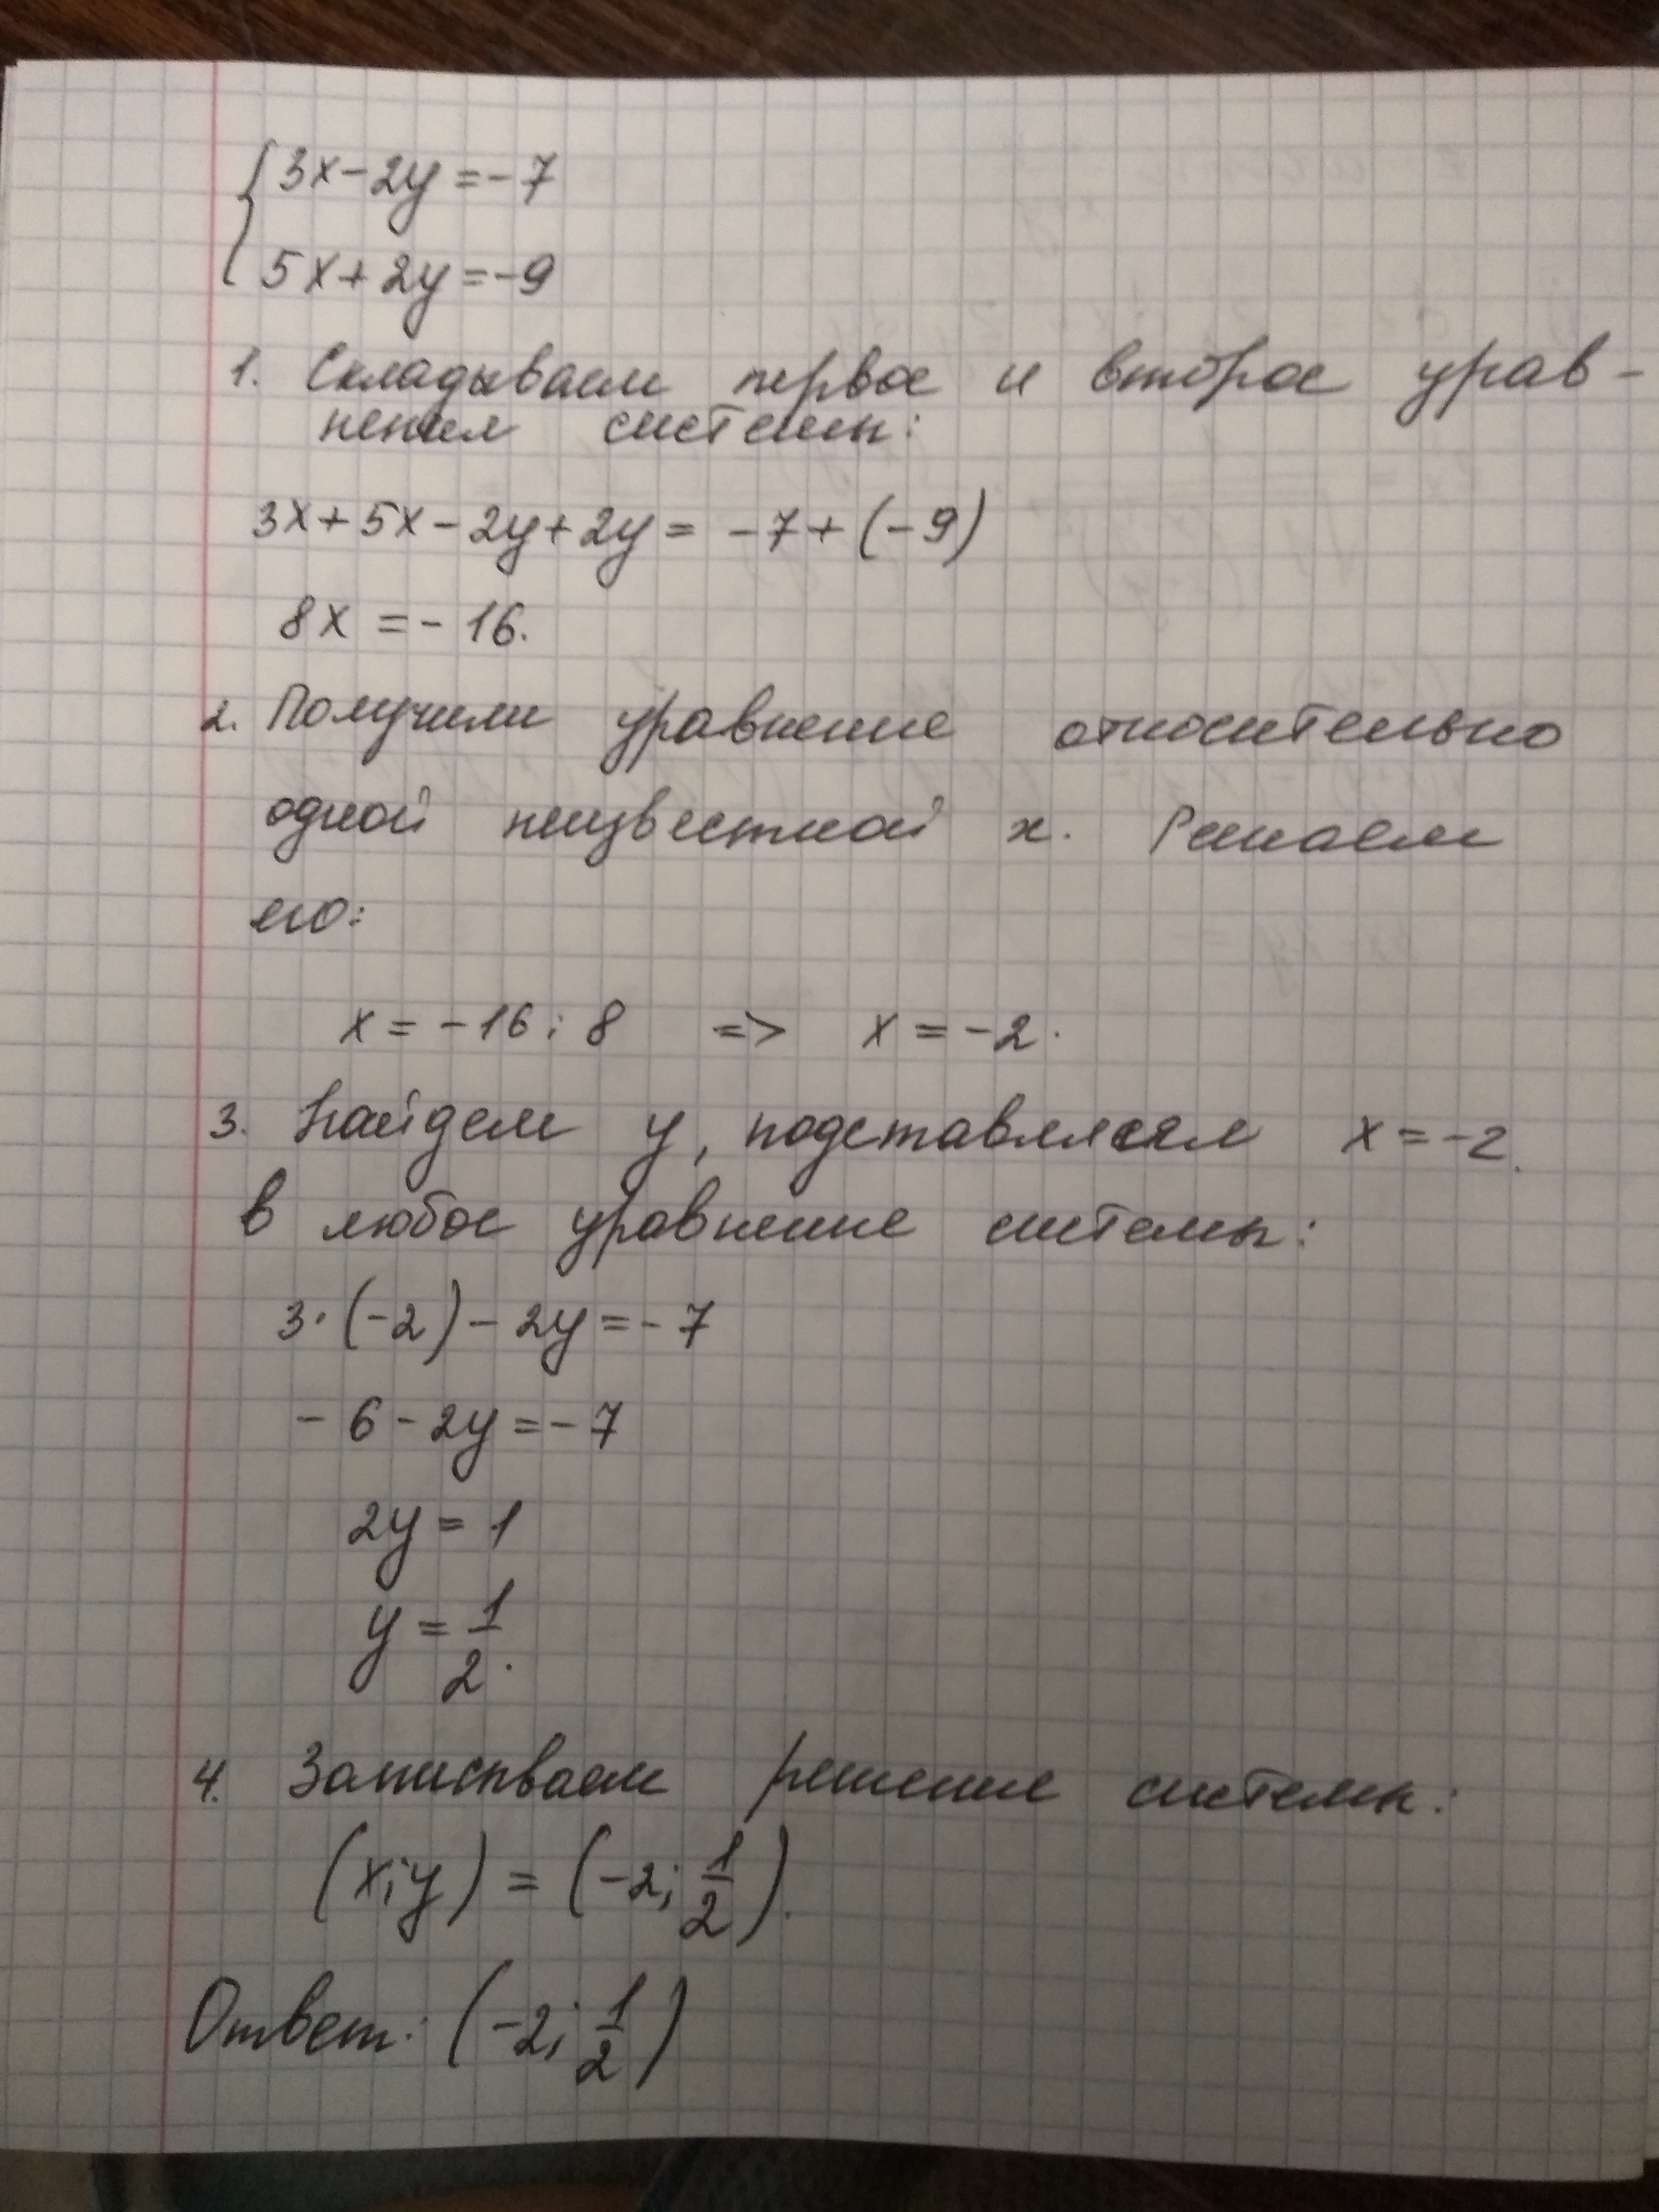 {3x-2y=-7
5x+2y=-9
1. Складываем первое и второе урав-
нения системы:
3x+5x-2y+2y= -7+(-9)
8x =-16.
2. Получили уравнение относительно
одной неизвестной x. Решаем
его:
x=-16:8 => x=-2.
3. Найдем y, подставляем x=-2
в любое уравнение системы:
3·(-2)-2y=-7
-6-2y=-7
2y=1
y=1/2.
4. Записываем решение системы:
(x;y)=(-2;1/2).
Ответ: (-2;1/2)